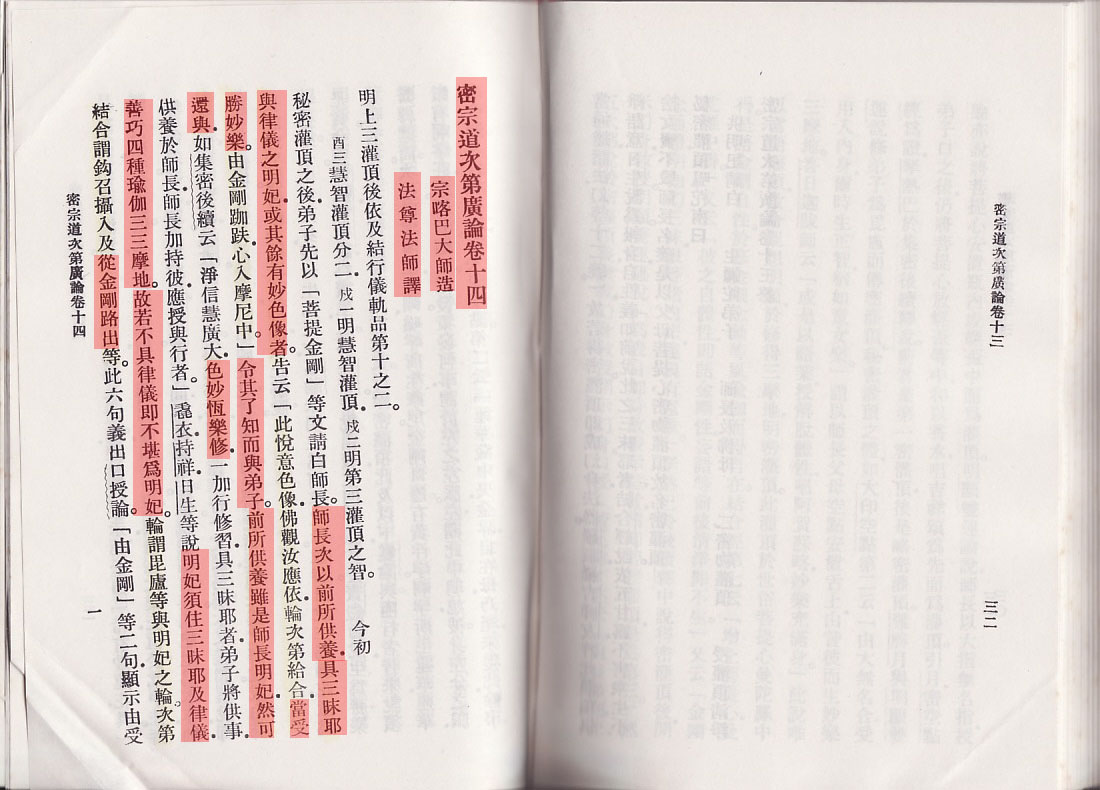 密宗道次第廣論卷十三
三二
密宗道次第廣論卷十四
宗喀巴大師造
法尊法師譯
明上三灌頂後依及結行儀軌品第十之二。
酉三慧智灌頂分二。戌一明慧智灌頂。戌二明第三灌頂之智。 今初
秘密灌頂之後。弟子先以「菩提金剛」等文請白師長。師長次以前所供養。具三昧耶
與律儀之明妃。或其餘有妙色像者。告云「此悅意色像。佛觀汝應依。輪次第給合。當受
勝妙樂。由金剛跏趺。心入摩尼中。」令其了知而與弟子。前所供養雖是師長明妃。然可
還與。如集密後續云「淨信慧廣大。色妙恆樂修。一加行修習。具三昧耶者。弟子將供事。
供養於師長。師長加持彼。應授與行者」毳衣。持祥。日生等說。明妃須住三昧耶及律儀。
善巧四種瑜伽三三摩地。故若不具律儀即不堪爲明妃。輪謂毘盧等與明妃之輪。次第
結合謂鈎召攝入及從金剛路出等。此六句義出口授論。「由金剛」等二句顯示由受
密宗道次第廣論卷十四
一